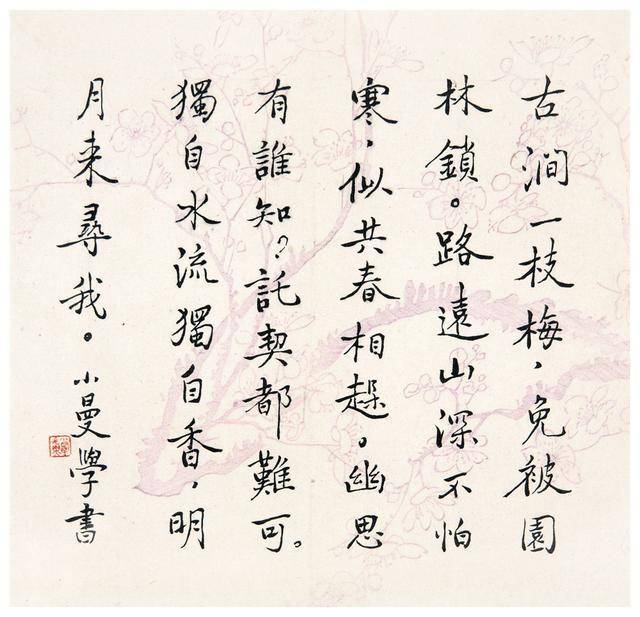 古澗一枝梅，免被園
林鎖。路遠山深不怕
寒，似共春相趓。幽思
有誰知？託契都難可。
獨自水流獨自香，明
月来尋我。小曼學書